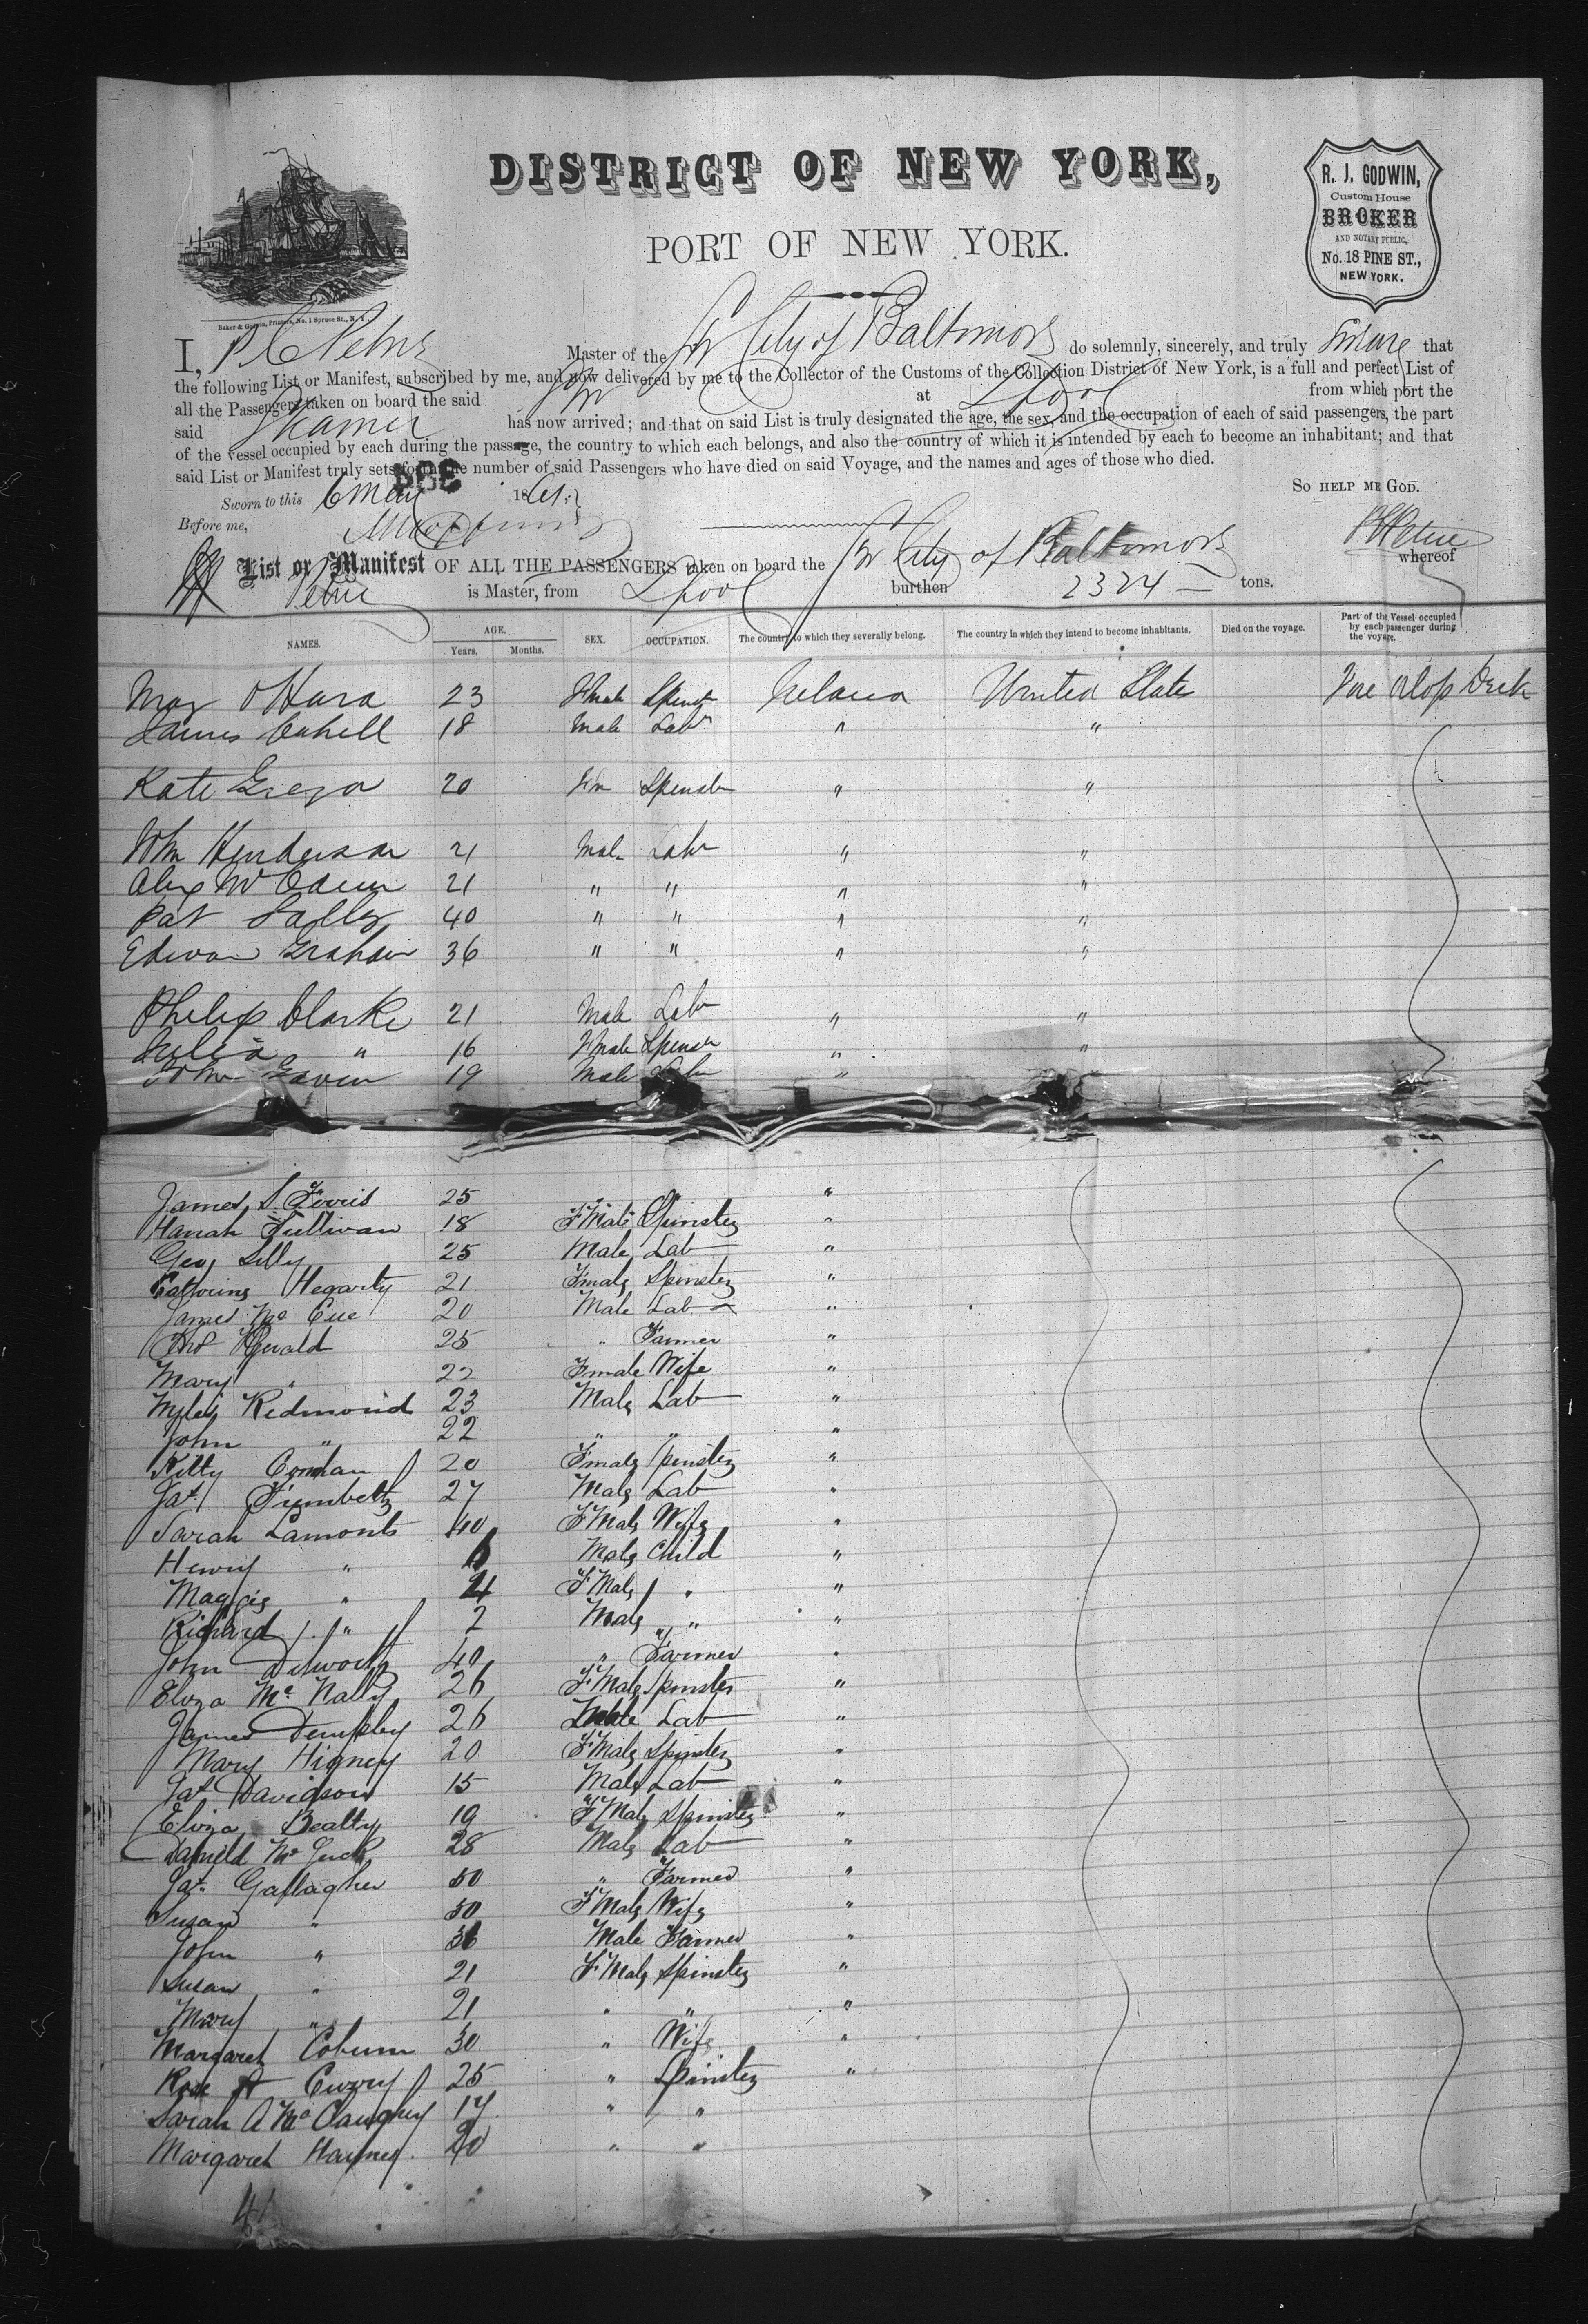 DISTRICT OF NEW YORK,
PORT OF NEW YORK.
R. J. GODWIN,
Custom House
BROKER
AND NOTARY PUBLIC,
No. 18 PINE ST.,
NEW YORK.
Baker & Godwin, Printers, No. 1 Spruce St., N. Y.
I, Master of the City of Baltimore do solemnly, sincerely, and truly that
the following List or Manifest, subscribed by me, and now delivered by me to the Collector of the Customs of the Collection District of New York, is a full and perfect List of
all the Passengers taken on board the said at Lpool from which port the
said Steamer has now arrived; and that on said List is truly designated the age, the sex, and the occupation of each of said passengers, the part
of the vessel occupied by each during the passage, the country to which each belongs, and also the country of which it is intended by each to become an inhabitant; and that
said List or Manifest truly sets forth the number of said Passengers who have died on said Voyage, and the names and ages of those who died.
So HELP ME GOD.
Sworn to this 6 May 1861
Before me,
List or Manifest OF ALL THE PASSENGERS taken on board the City of Baltimore whereof
Petrie is Master, from Lpool burthen 2324 tons.
NAMES. AGE. Years. Months. SEX. OCCUPATION. The country to which they severally belong. The country in which they intend to become inhabitants. Died on the voyage. Part of the Vessel occupied by each passenger during the voyage.
Mary O Hara 23 Fmale Spinst United State Deck
James Cahill 18 Male Labr " "
Kate 20 Fm Spinster " "
John Henderson 21 Male Labr " "
Alex 21 " " " "
Pat 40 " " " "
Graham 36 " " " "
Philip Clarke 21 Male Labr " "
Julia " 16 Fmale Spinster " "
John Gavin 19 Male Labr "
James S. Ferris 25 "
Hanah Sullivan 18 F Male Spinster "
Geo Lilly 25 Male Lab "
Catherine Hegarty 21 Fmale Spinster "
James Mc Cue 20 Male Lab "
25 " Farmer "
Mary " 22 Fmale Wife "
Myles Redmond 23 Male Lab "
John " 22 " " "
Kitty 20 Fmale Spinster "
27 Male Lab "
Sarah Lamont 40 F Male Wife "
Henry " 6 Male Child "
Maggie " 4 F Male " "
Richard " 2 Male " "
John Dilworth 40 " Farmer "
Eliza Mc Nally 26 F Male Spinster "
James Dempsey 26 Male Lab "
Mary Higney 20 F Male Spinster "
Jas Davidson 15 Male Lab "
Eliza Beatty 19 F Male Spinster "
28 Male Lab "
Jas. Gallagher 50 " Farmer "
Susan " 50 F Male Wife "
John " Male Farmer "
Susan " 21 F Male Spinster "
Mary " 21 " " "
Margaret Coburn 30 " Wife "
Rose A Curry 25 " Spinster "
Sarah A Mc Caughey 17 " "
Margaret 20 " "
41